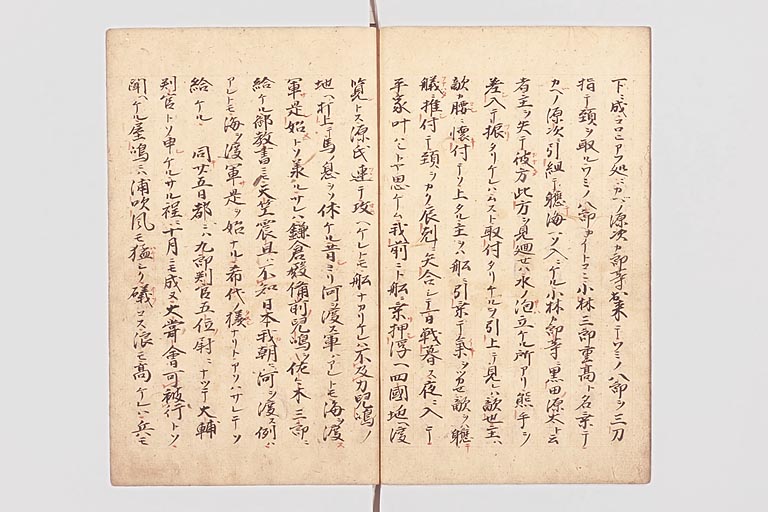 下ニ成コロヒアフ処ニカヘノ源次カ郎等落合テウミノ八郎ヲ三刀
指テ頸ヲ取ルウミノ八郎カイトコニ小林三郎重高ト名乗テ
カヘノ源次ニ引組テ軈海ヘソ入ニケル小林カ郎等ニ黒田源太ト云
者主ヲ失テ彼方此方ヲ見廻セハ水ノ泡立ル所アリ熊手ヲ
差入テ振タリケレハムスト取付タリケルヲ引上テ見レハ敵也主ハ
敵カ腰ニ懐付テソ上タル主ヲハ船ニ引乗テ
艤ニ推付テ頸ヲカク辰剋ニ矢合シテ一日戦暮ス夜ニ入テ
平家叶ハシトヤ思ケム我前ニト船ニ乗押浮ヘ四國ノ地ヘ渡
覧トス源氏連テ攻ヘケレトモ船ナカリケレハ不及力児嶋ノ
地ヘ打上テ馬ノ息ヲソ休ケル昔ヨリ河ヲ渡ス軍ハアレトモ海ヲ渡ス
軍是始トソ承ルサレハ鎌倉殿備前児嶋ヲ佐々木三郎ニ
給ケル御教書ニモ天竺震旦ハ不知日本我朝ニ河ヲ渡ス例ハ
アレトモ海ヲ渡軍是ヲ始ナル希代ノ様ナリトアソハサレテソ
給ケル 同廿五日都ニハ九郎判官五位尉ニナツテ大輔
判官トソ申ケルサル程ニ十月ニモ成ヌ大嘗會可被行トソ
聞ヘケル屋嶋ニハ浦吹風モ猛シク礒コス浪モ高ケレハ兵モ